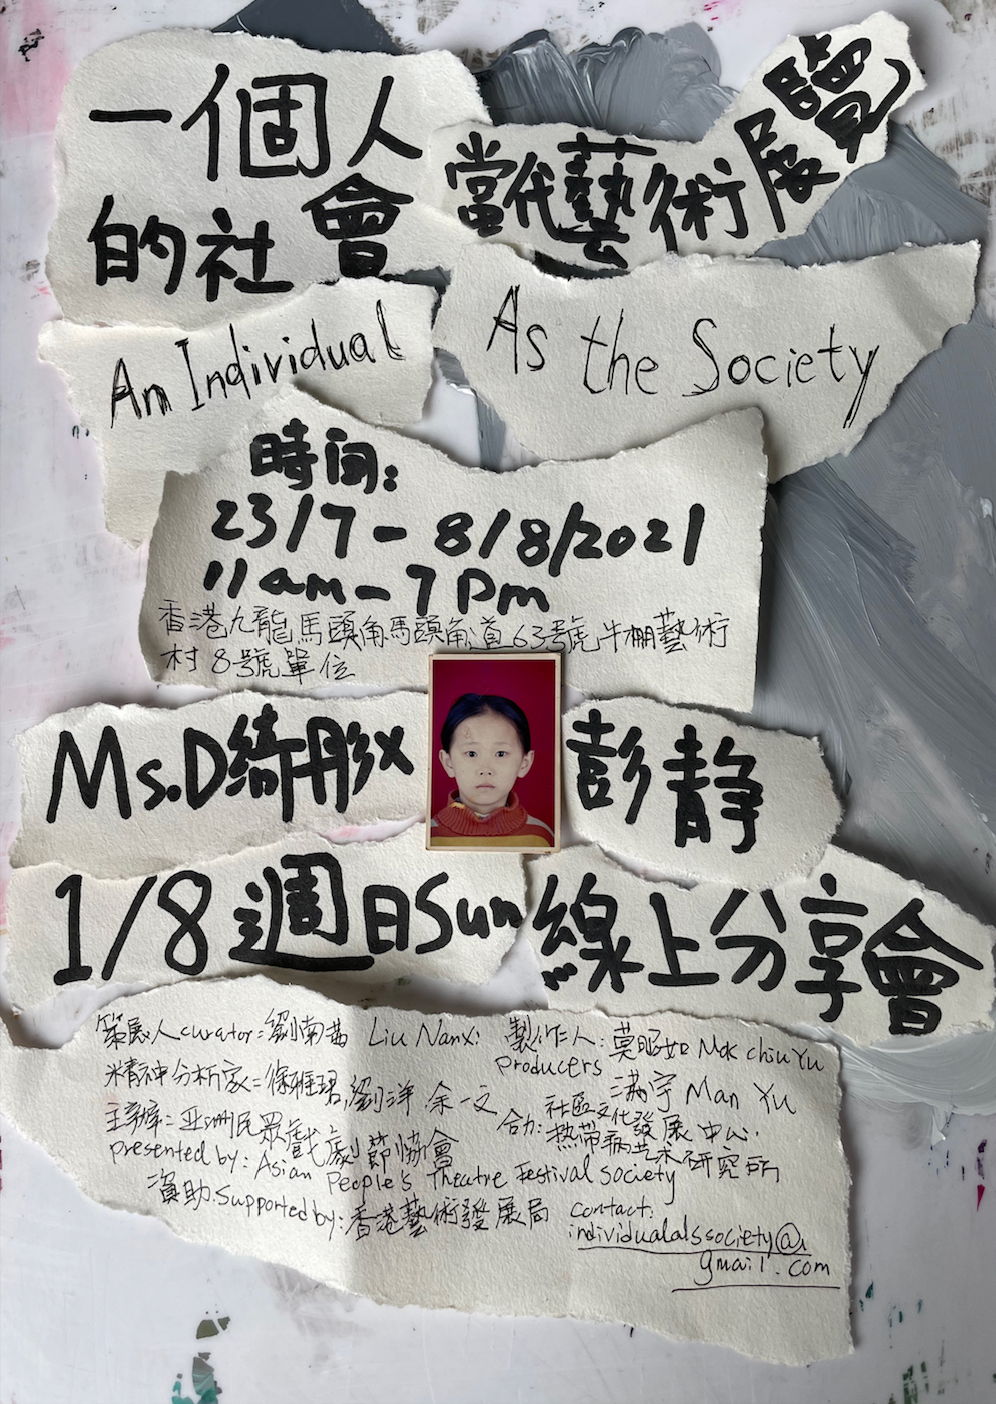 一個人
的社會
當代藝術展覽
An Individual
As the Society
時间:
23/7-8/8/2021
11am-7pm
香港九龍馬頭角馬頭角道63號牛棚藝術
村8號單位
Ms.D綺彤x
彭静
1/8週日Sun
線上分享會
策展人curator:劉南茜 Liu Nanxi
製作人:莫昭如 Mok chiu Yu
producers 满宇 Man Yu
精神分析家:徐雅珺,劉洋 余一文
主辦:亞洲民眾戲劇節協會
presented by: Asian People's Theatre Festival Society
合办:社區文化發展中心.
热带病艺术研究所
資助.supported by:香港藝術發展局
contact:
individualalssociety@
gmail.com